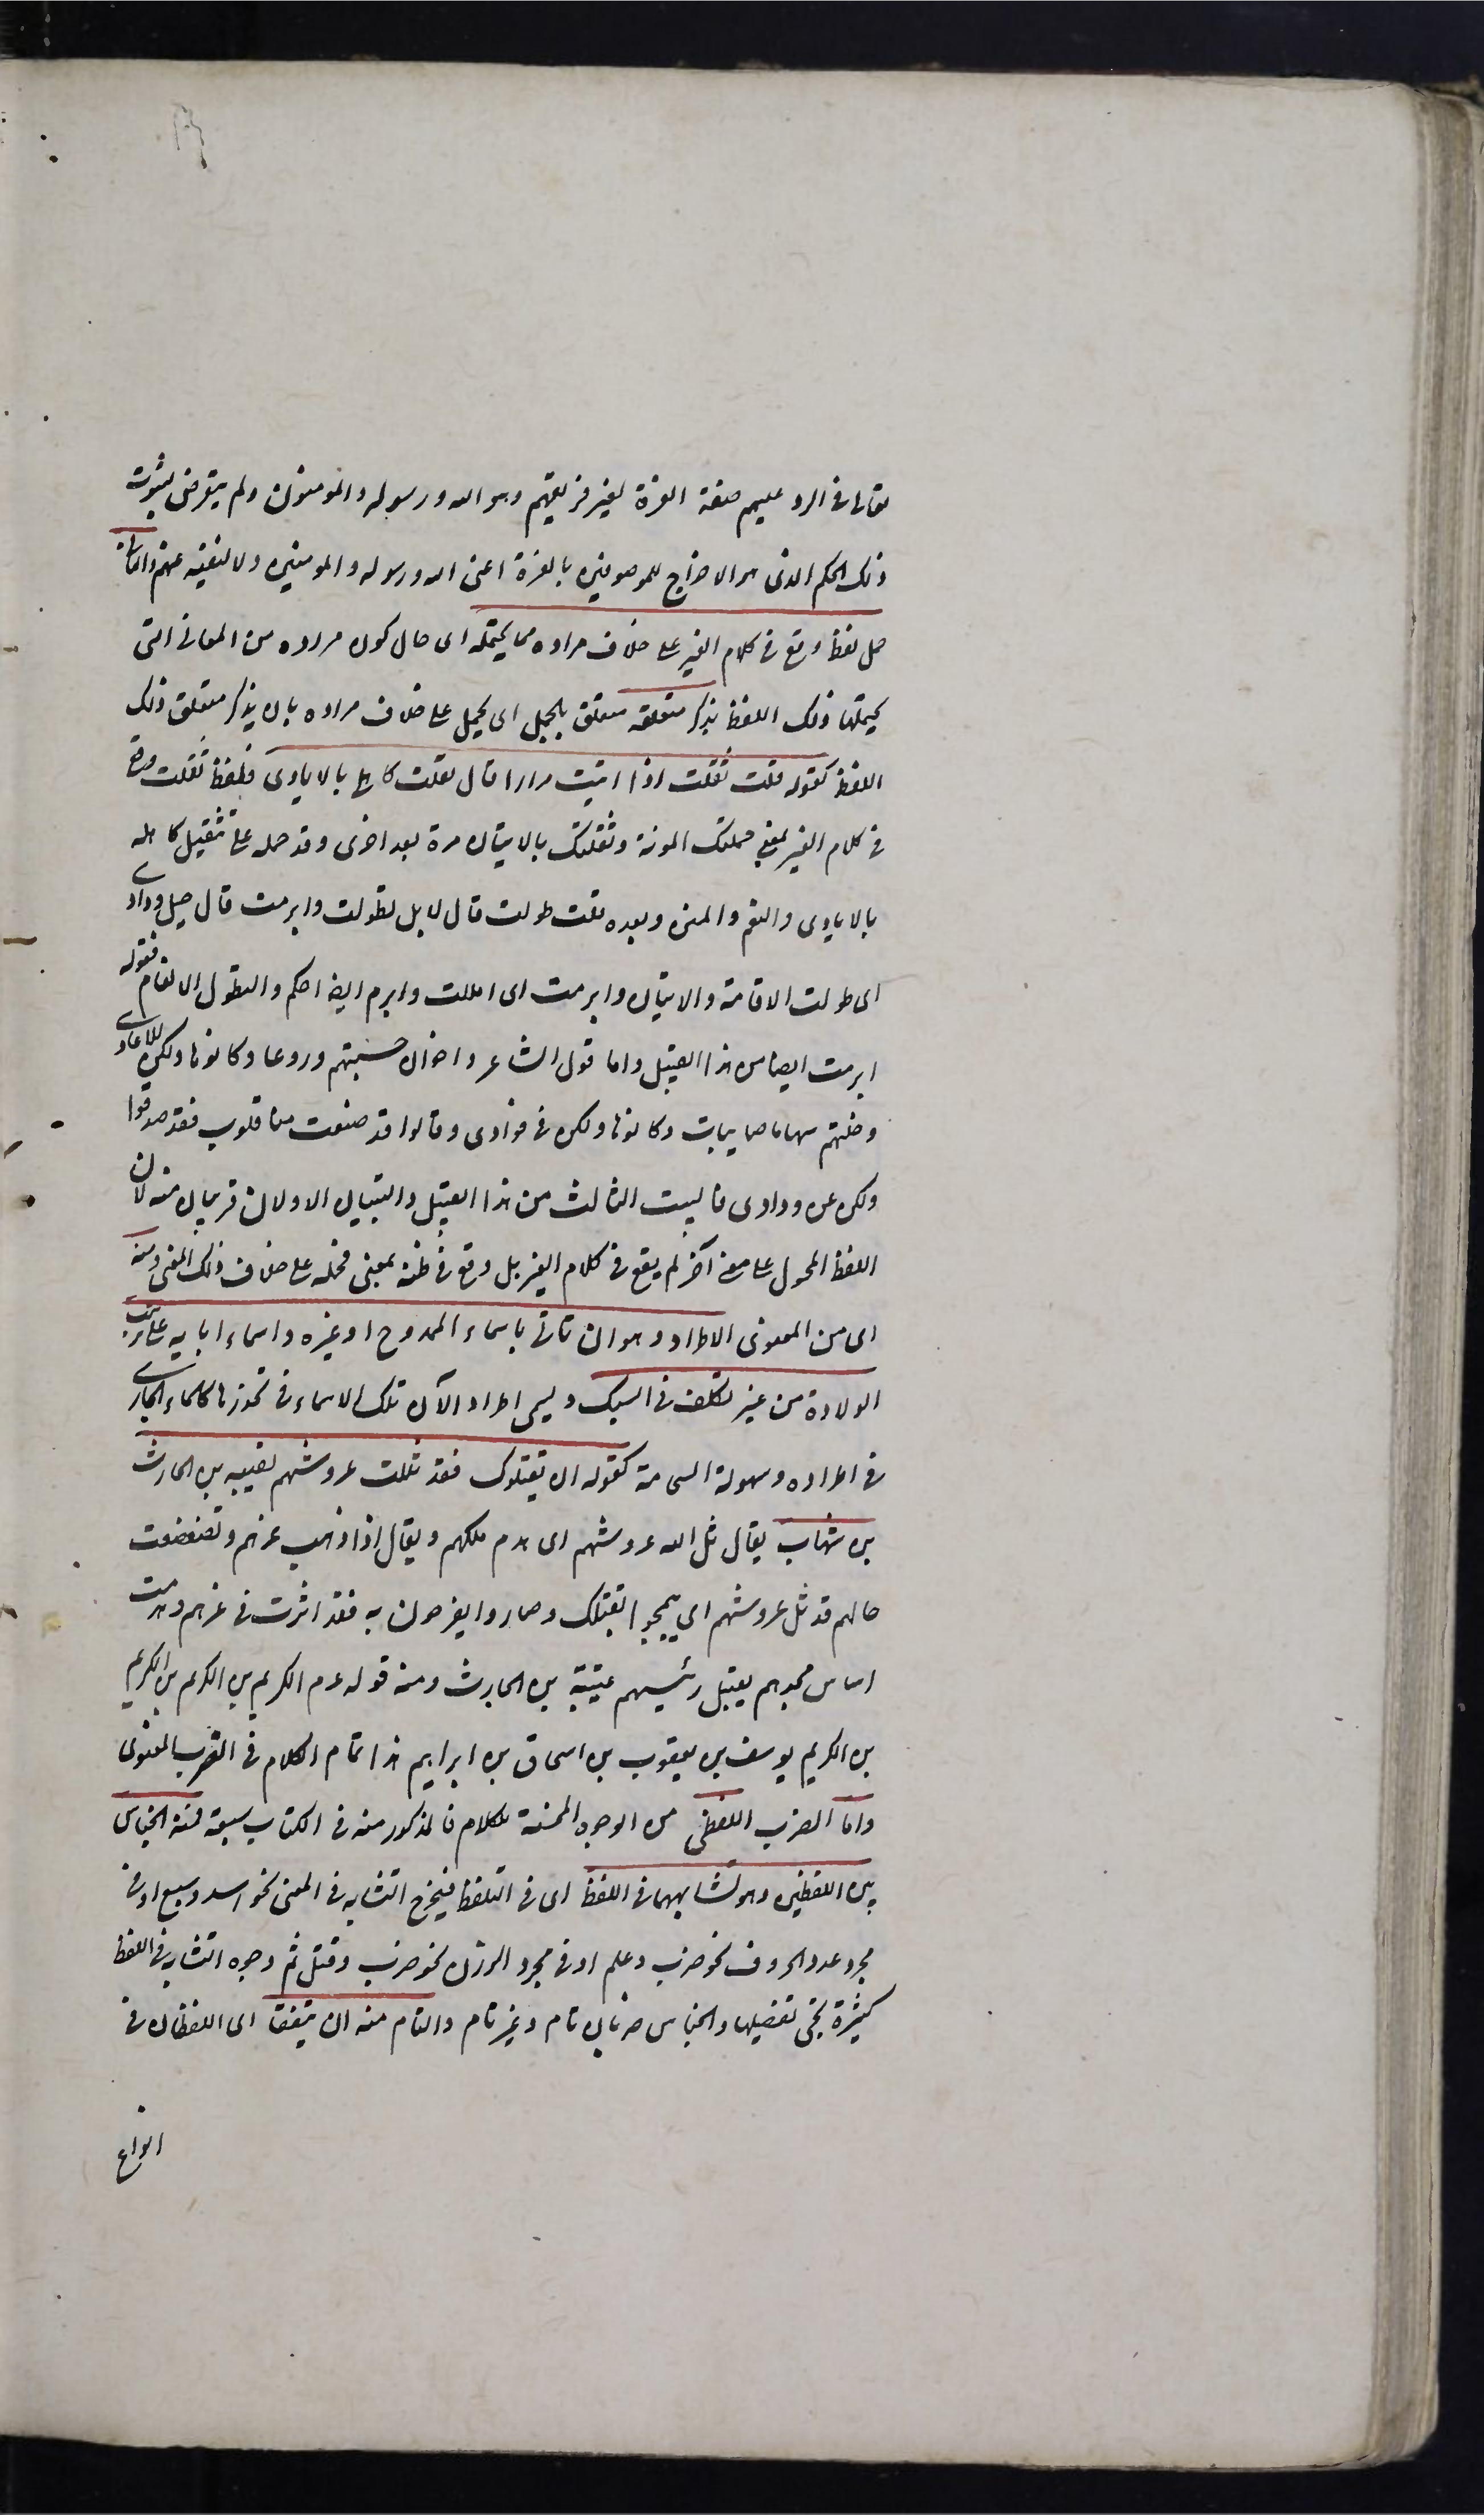 تعالى فى الرد عليهم صفة العزة لغير فريقهم وهو الله ورسوله والمؤمنون ولم يتعرض لثبوت
ذلك الحكم الذى هو الاخراج للموصوفين بالعزة اعنى الله ورسوله والمومنين ولا لنفيه عنهم والثانى
حمل لفظ وقع فى كلام الغير على خلاف مراده مما يحتمله اى حال كون مراده من المعانى التى
يحتملها ذلك اللفظ بذكر متعلقه متعلق بالحمل اى يحمل على خلاف مراده بان يذكر متعلق ذلك
اللفظ كقوله قلت ثقلت اذا اتيت مرارا قال ثقلت كاهلى بالايادى فلفظ ثقلت وقع
فى كلام الغير بمعنى حملتك المونة وثقلتك بالاتيان مرة بعد اخرى وقد حمله على تثقيل كاهله
بالايادى والنعم والمنن وبعده قلت طولت قال لا بل تطولت وابرمت قال حبل ودادى
اى طولت الاقامة والاتيان وابرمت اى امللت وابرم ايضا احكم والتطول الانعام فقوله
ابرمت ايضا من هذا القبيل واما قول الشاعر واخوان حسبتهم دروعا وكانوها ولكن للاعادى
وخلتهم سهاما صايبات وكانوها ولكن فى فوادى وقالوا قد صفت منا قلوب فقد صدقوا
ولكن عن ودادى فالبيت الثالث من هذا القبيل والبيتان الاولان قريبان منه لان
اللفظ المحمول على معنى آخر لم يقع فى كلام الغير بل وقع فى ظنه بمعنى فحمله على خلاف ذلك المعنى ومنه
اى من المعنوى الاطراد وهو ان تاتى باسماء الممدوح او غيره واسماء ابايه على ترتيب
الولادة من غير تكلف فى السبك وليس اطراد الآن تلك الاسماء فى تحدرها كالماء الجارى
فى اطراده وسهولة انسجامه كقوله ان يقتلوك فقد ثللت عروشهم بعتيبة بن الحارث
بن شهاب يقال ثل الله عروشهم اى هدم ملكهم ويقال اذا ذهب عزهم وتضعضعت
حالهم قد ثل عروشهم اى ان تبجحوا بقتلك وصاروا يفرحون به فقد اثرت فى عزهم وهدمت
اساس مجدهم بقتل رئيسهم عتيبة بن الحارث ومنه قوله عم الكريم بن الكريم بن الكريم
بن الكريم يوسف بن يعقوب بن اسحاق بن ابراهيم هذا تمام الكلام فى الضرب المعنوى
واما الضرب اللفظى من الوجوه المحسنة للكلام فالمذكور منه فى الكتاب سبعة فمنه الجناس
بين اللفظين وهو تشابههما فى اللفظ اى فى التلفظ فيخرج التشابه فى المعنى نحو اسد وسبع او فى
مجرد عدد الحروف نحو ضرب وعلم او فى مجرد الوزن نحو ضرب وقتل ثم وجوه التشابه فى اللفظ
كثيرة يجئ تفصيلها والجناس ضربان تام وغير تام والتام منه ان يتفقا اى اللفظان فى
انواع